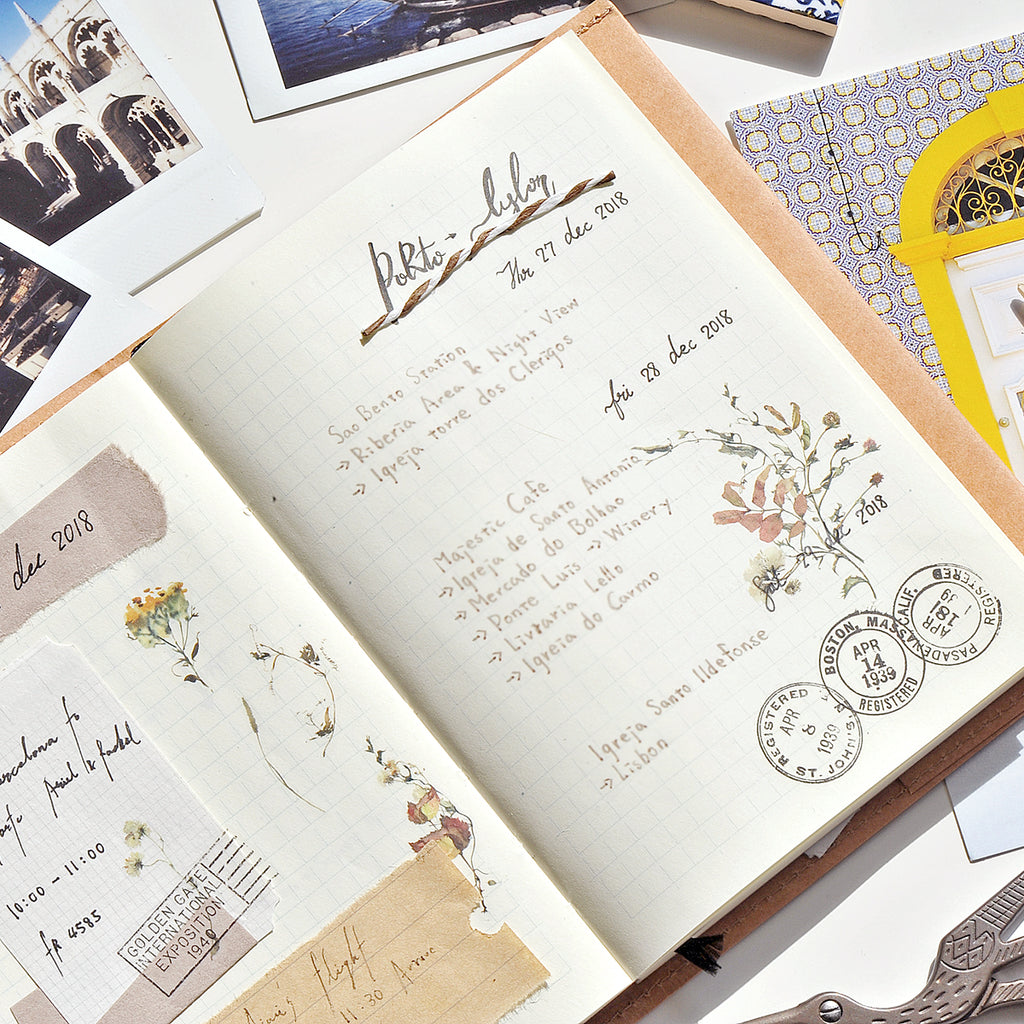 dec 2018
Barcelona to
Porto Ariel & Rachel
10:00 - 11:00
FR 4585
GOLDEN GATE
INTERNATIONAL
EXPOSITION
1940
flight
11:30 Arrive
Porto - lisbon
Thr 27 dec 2018
Sao Bento Station
→ Riberia Area & Night View
→ Igreja torre dos Clerigos
fri 28 dec 2018
Majestic Cafe
→ Igreja de Santo Antonio
→ Mercado do Bolhao
→ Ponte Luis → Winery
→ Livraria Lello
→ Igreja do Carmo
Sat 29 dec 2018
Igreja Santo Ildefonse
→ Lisbon
REGISTERED
APR
8
1939
ST. JOHN'S
BOSTON, MASS.
APR
14
1939
REGISTERED
PASADENA CALIF.
APR
18
REGISTERED